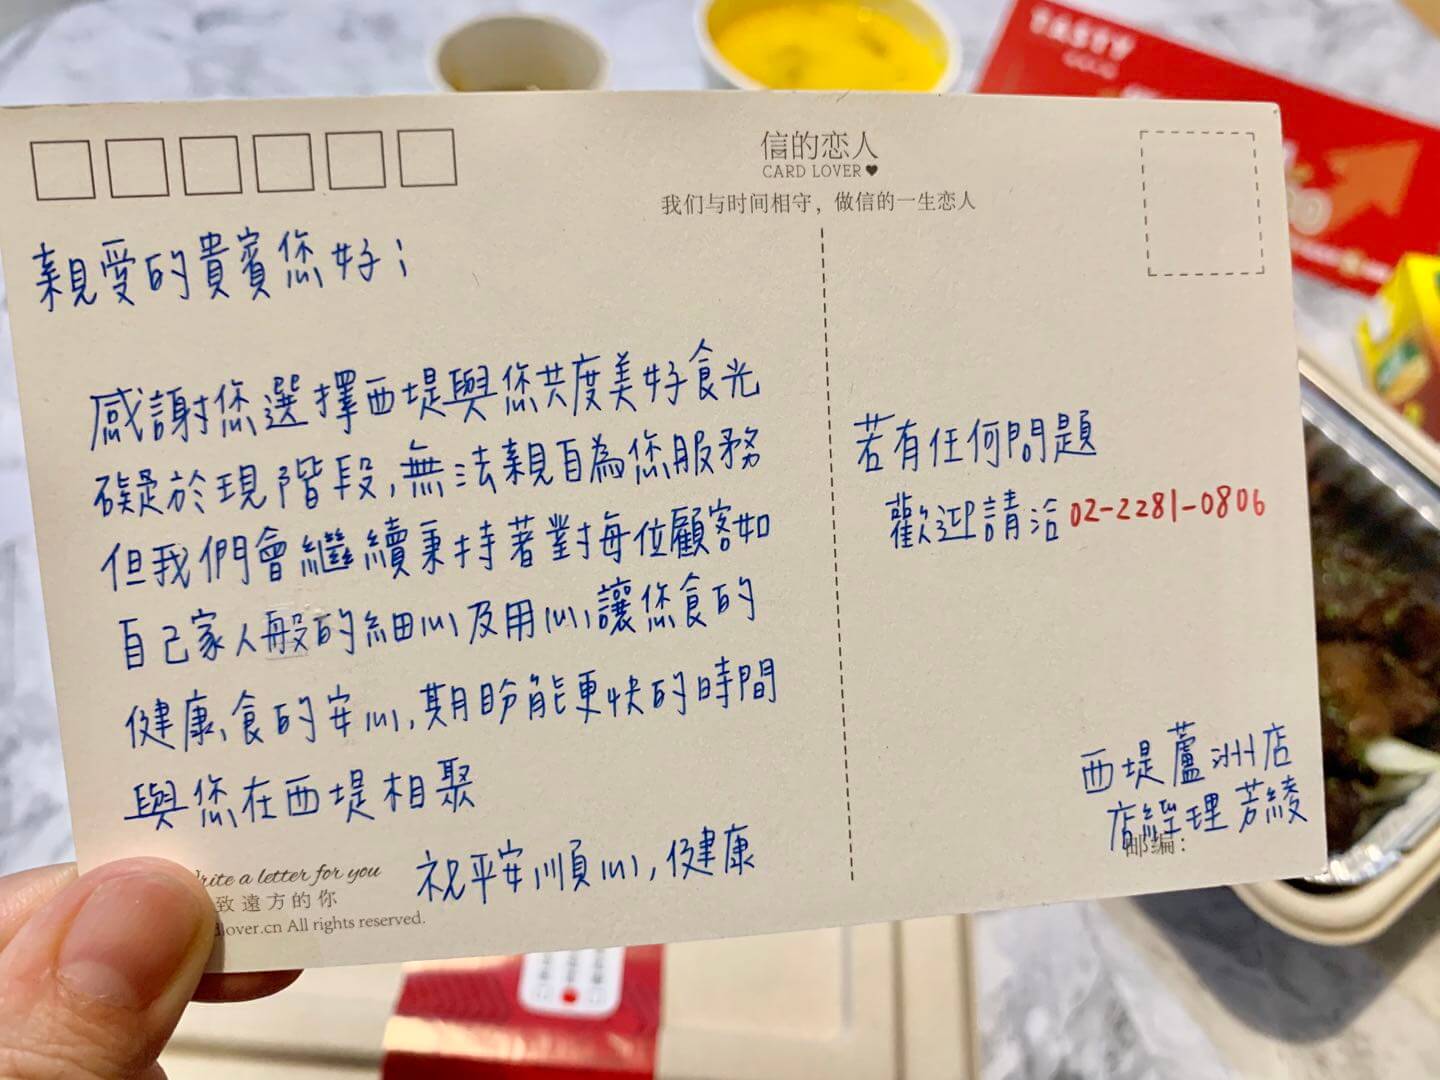 信的恋人
CARD LOVER♥
我们与时间相守，做信的一生恋人
TASTY
親愛的貴賓您好；
感謝您選擇西堤與您共度美好食光
礙於現階段,無法親自為您服務
但我們會繼續秉持著對每位顧客如
自己家人般的細心及用心,讓您食的
健康、食的安心,期盼能更快的時間
與您在西堤相聚
祝平安順心,健康
若有任何問題
歡迎請洽02-2281-0806
西堤蘆洲店
店經理 芳綾
邮编：
rite a letter for you
致遠方的你
dlover.cn All rights reserved.